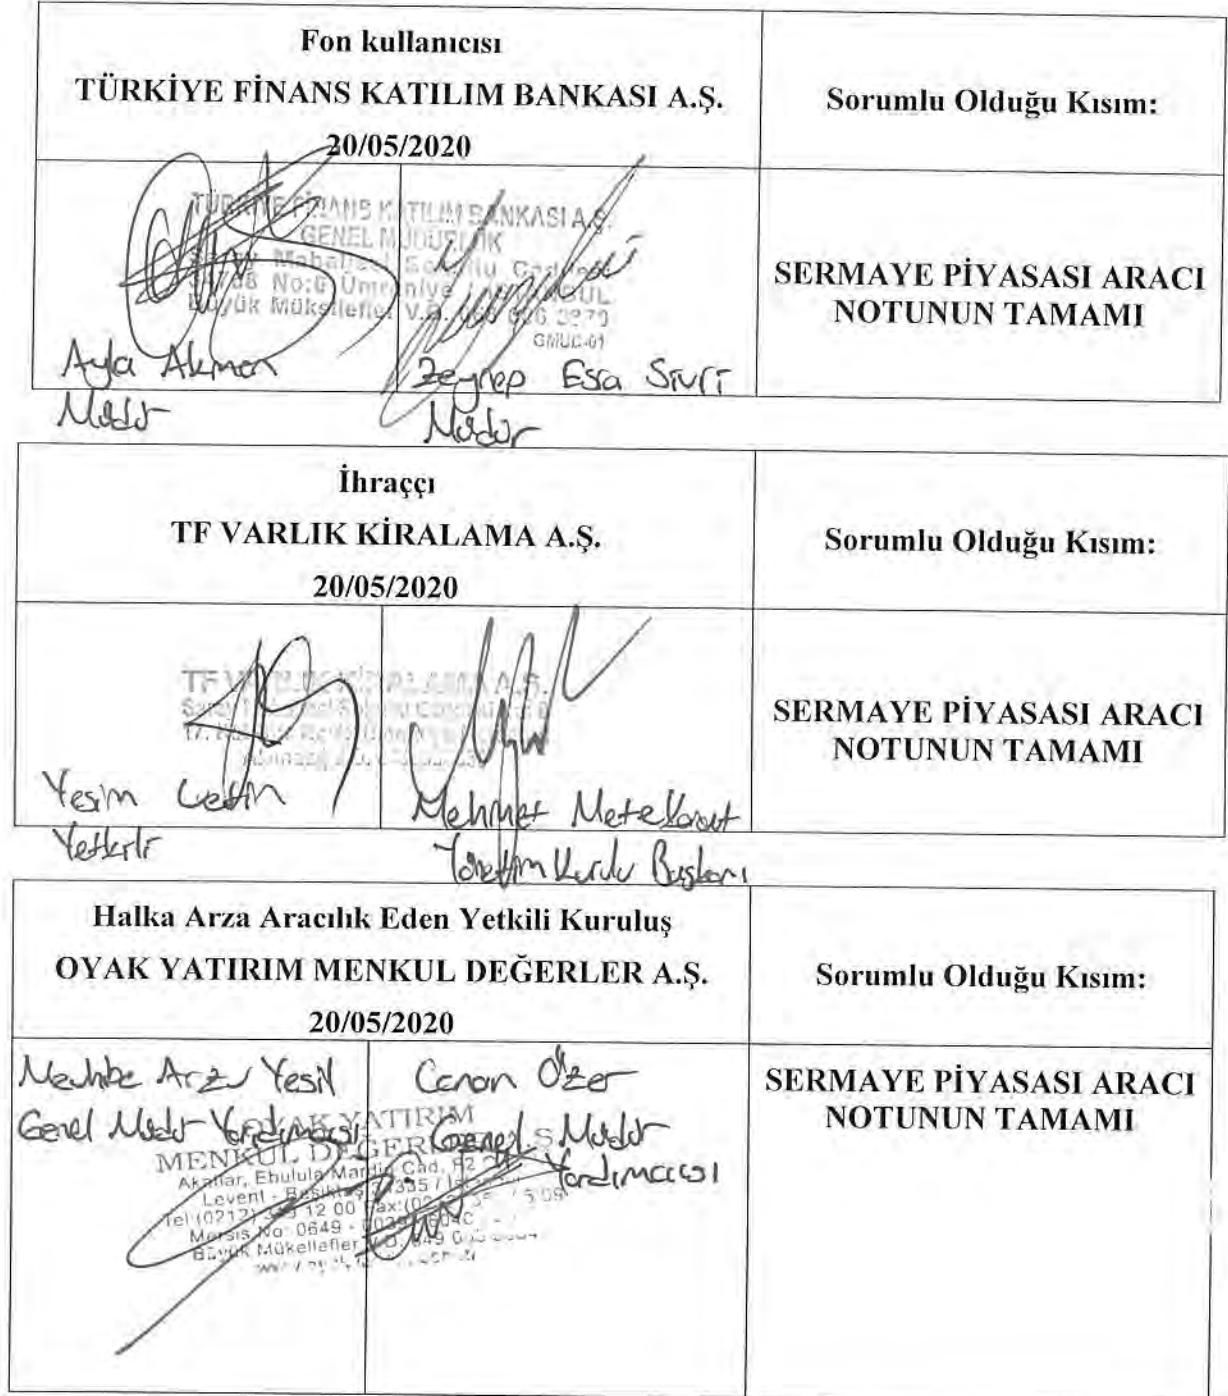 Fon kullanıcısı
TÜRKİYE FİNANS KATILIM BANKASI A.Ş.
20/05/2020
Sorumlu Olduğu Kısım:
TÜRKİYE FİNANS KATILIM BANKASI A.Ş.
GENEL MÜDÜRLÜK
No:6 Ümraniye
Büyük Mükellefler V.D.
GMUC-01
Ayla Akman
Müdür
Zeynep Esra Sivri
Müdür
SERMAYE PİYASASI ARACI
NOTUNUN TAMAMI
İhraççı
TF VARLIK KİRALAMA A.Ş.
20/05/2020
Sorumlu Olduğu Kısım:
TF VARLIK KİRALAMA A.Ş.
Yeşim Çetin
Yetkili
Mehmet Mete
Yönetim Kurulu Başkanı
SERMAYE PİYASASI ARACI
NOTUNUN TAMAMI
Halka Arza Aracılık Eden Yetkili Kuruluş
OYAK YATIRIM MENKUL DEĞERLER A.Ş.
20/05/2020
Sorumlu Olduğu Kısım:
Arzu Yeşil
Genel Müdür Yardımcısı
Canan Özer
Genel Müdür
Yardımcısı
OYAK YATIRIM
MENKUL DEĞERLER A.Ş.
Akatlar, Ebulula Mardin Cad.
Levent - Beşiktaş
Tel:(0212) 12 00 Fax:
Mersis No: 0649 -
Büyük Mükellefler V.D. 649
SERMAYE PİYASASI ARACI
NOTUNUN TAMAMI